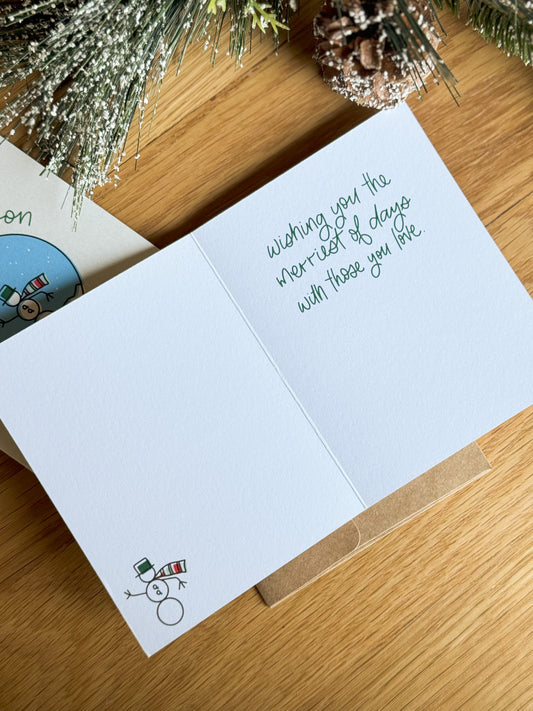 wishing you the
merriest of days
with those you love.